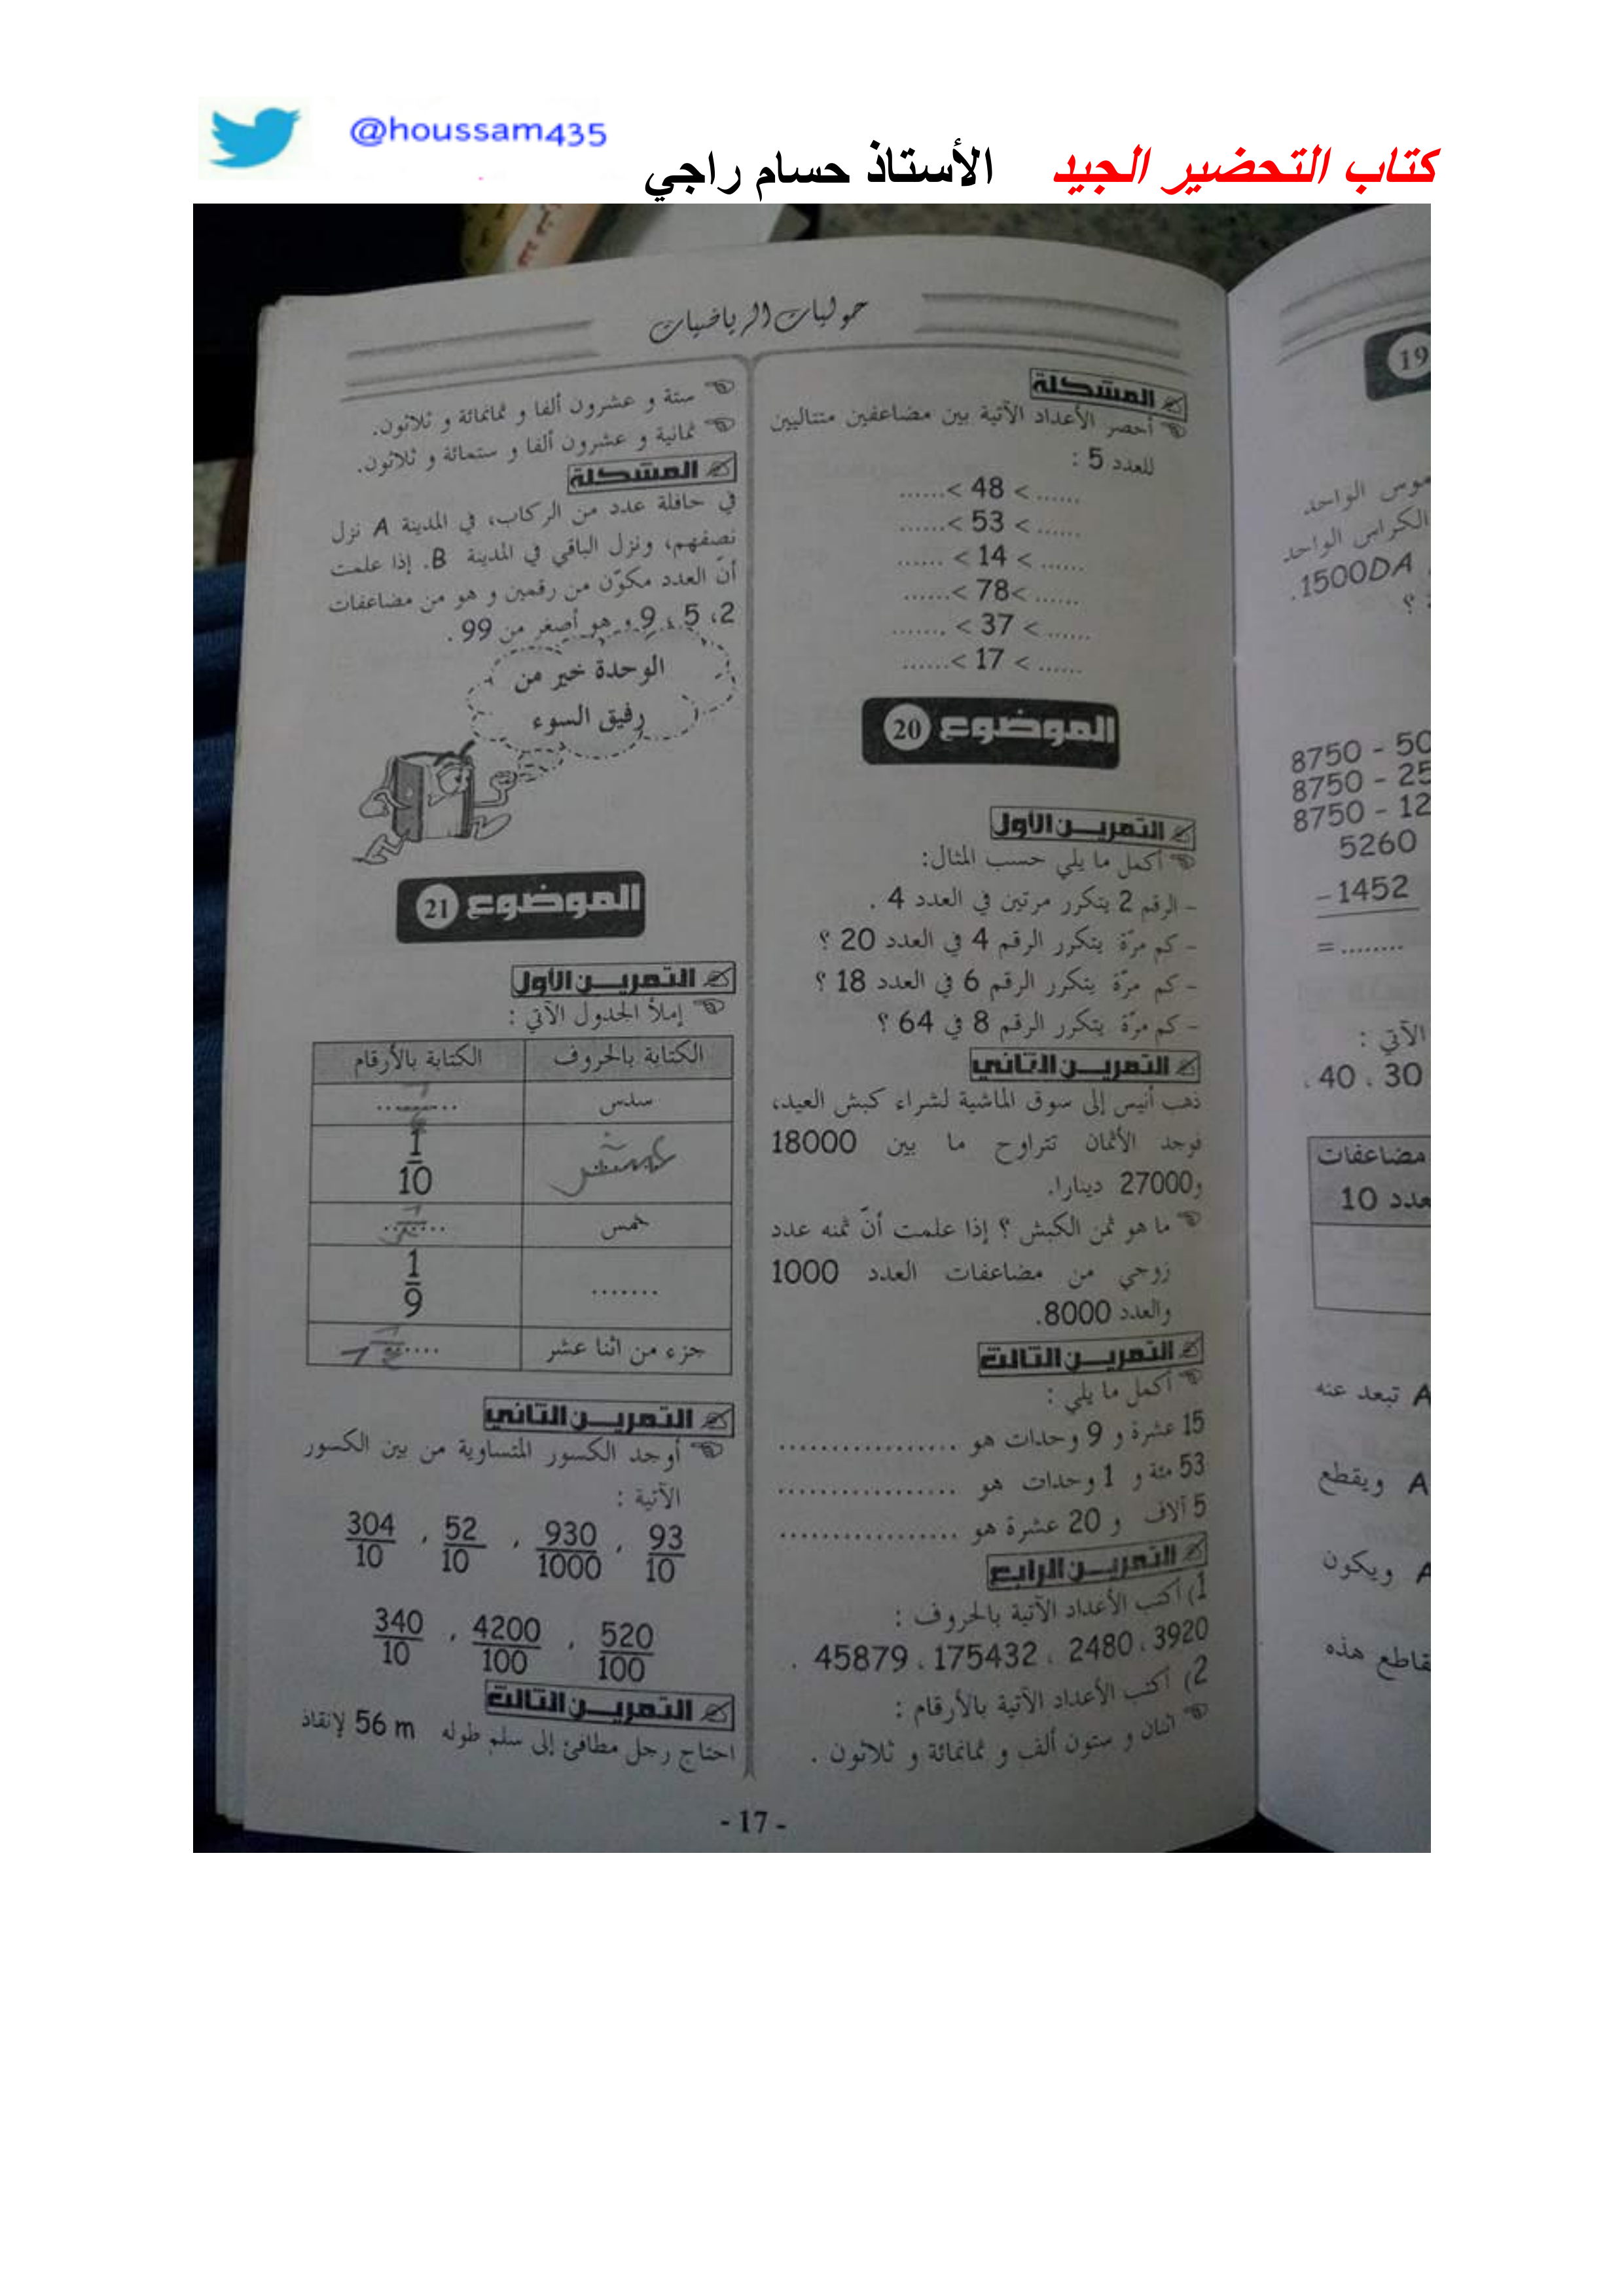 @houssam435
كتاب التحضير الجيد الأستاذ حسام راجي
حوليات الرياضيات
المشكلة
أحصر الأعداد الآتية بين مضاعفين متتاليين
للعدد 5 :
......< 48 < ......
......< 53 < ......
...... < 14 < ......
......< 78< ......
....... < 37 < ......
......< 17 < ......
الموضوع 20
التمرين الأول
أكمل ما يلي حسب المثال:
- الرقم 2 يتكرر مرتين في العدد 4 .
- كم مرّة يتكرر الرقم 4 في العدد 20 ؟
- كم مرّة يتكرر الرقم 6 في العدد 18 ؟
- كم مرّة يتكرر الرقم 8 في 64 ؟
التمرين الثاني
ذهب أنيس إلى سوق الماشية لشراء كبش العيد،
فوجد الأثمان تتراوح ما بين 18000
و27000 دينارا.
ما هو ثمن الكبش ؟ إذا علمت أنّ ثمنه عدد
زوجي من مضاعفات العدد 1000
والعدد 8000.
التمرين الثالث
أكمل ما يلي :
15 عشرة و 9 وحدات هو .................
53 مئة و 1 وحدات هو .................
5 آلاف و 20 عشرة هو .................
التمرين الرابع
1) أكتب الأعداد الآتية بالحروف :
3920، 2480 ، 175432 ، 45879 .
2) أكتب الأعداد الآتية بالأرقام :
اثنان و ستون ألف و ثمانمائة و ثلاثون .
ستة و عشرون ألفا و ثمانمائة و ثلاثون.
ثمانية و عشرون ألفا و ستمائة و ثلاثون.
المشكلة
في حافلة عدد من الركاب، في المدينة A نزل
نصفهم، ونزل الباقي في المدينة B. إذا علمت
أنّ العدد مكوّن من رقمين و هو من مضاعفات
2، 5 ، 9 و هو أصغر من 99 .
الوحدة خير من
رفيق السوء
الموضوع 21
التمرين الأول
إملأ الجدول الآتي :
الكتابة بالحروف الكتابة بالأرقام
سدس .........
عشر 1/10
خمس .......
....... 1/9
جزء من اثنا عشر .....
التمرين الثاني
أوجد الكسور المتساوية من بين الكسور
الآتية :
93/10 ، 930/1000 ، 52/10 ، 304/10
520/100 ، 4200/100 ، 340/10
التمرين الثالث
احتاج رجل مطافئ إلى سلم طوله 56 m لإنقاذ
- 17 -
19
موس الواحد.
الكراس الواحد
1500DA .
؟
8750 - 50
8750 - 25
8750 - 12
5260
- 1452
= ........
الآتي :
30 ، 40 ،
مضاعفات
عدد 10
A تبعد عنه
A ويقطع
A ويكون
قاطع هذه